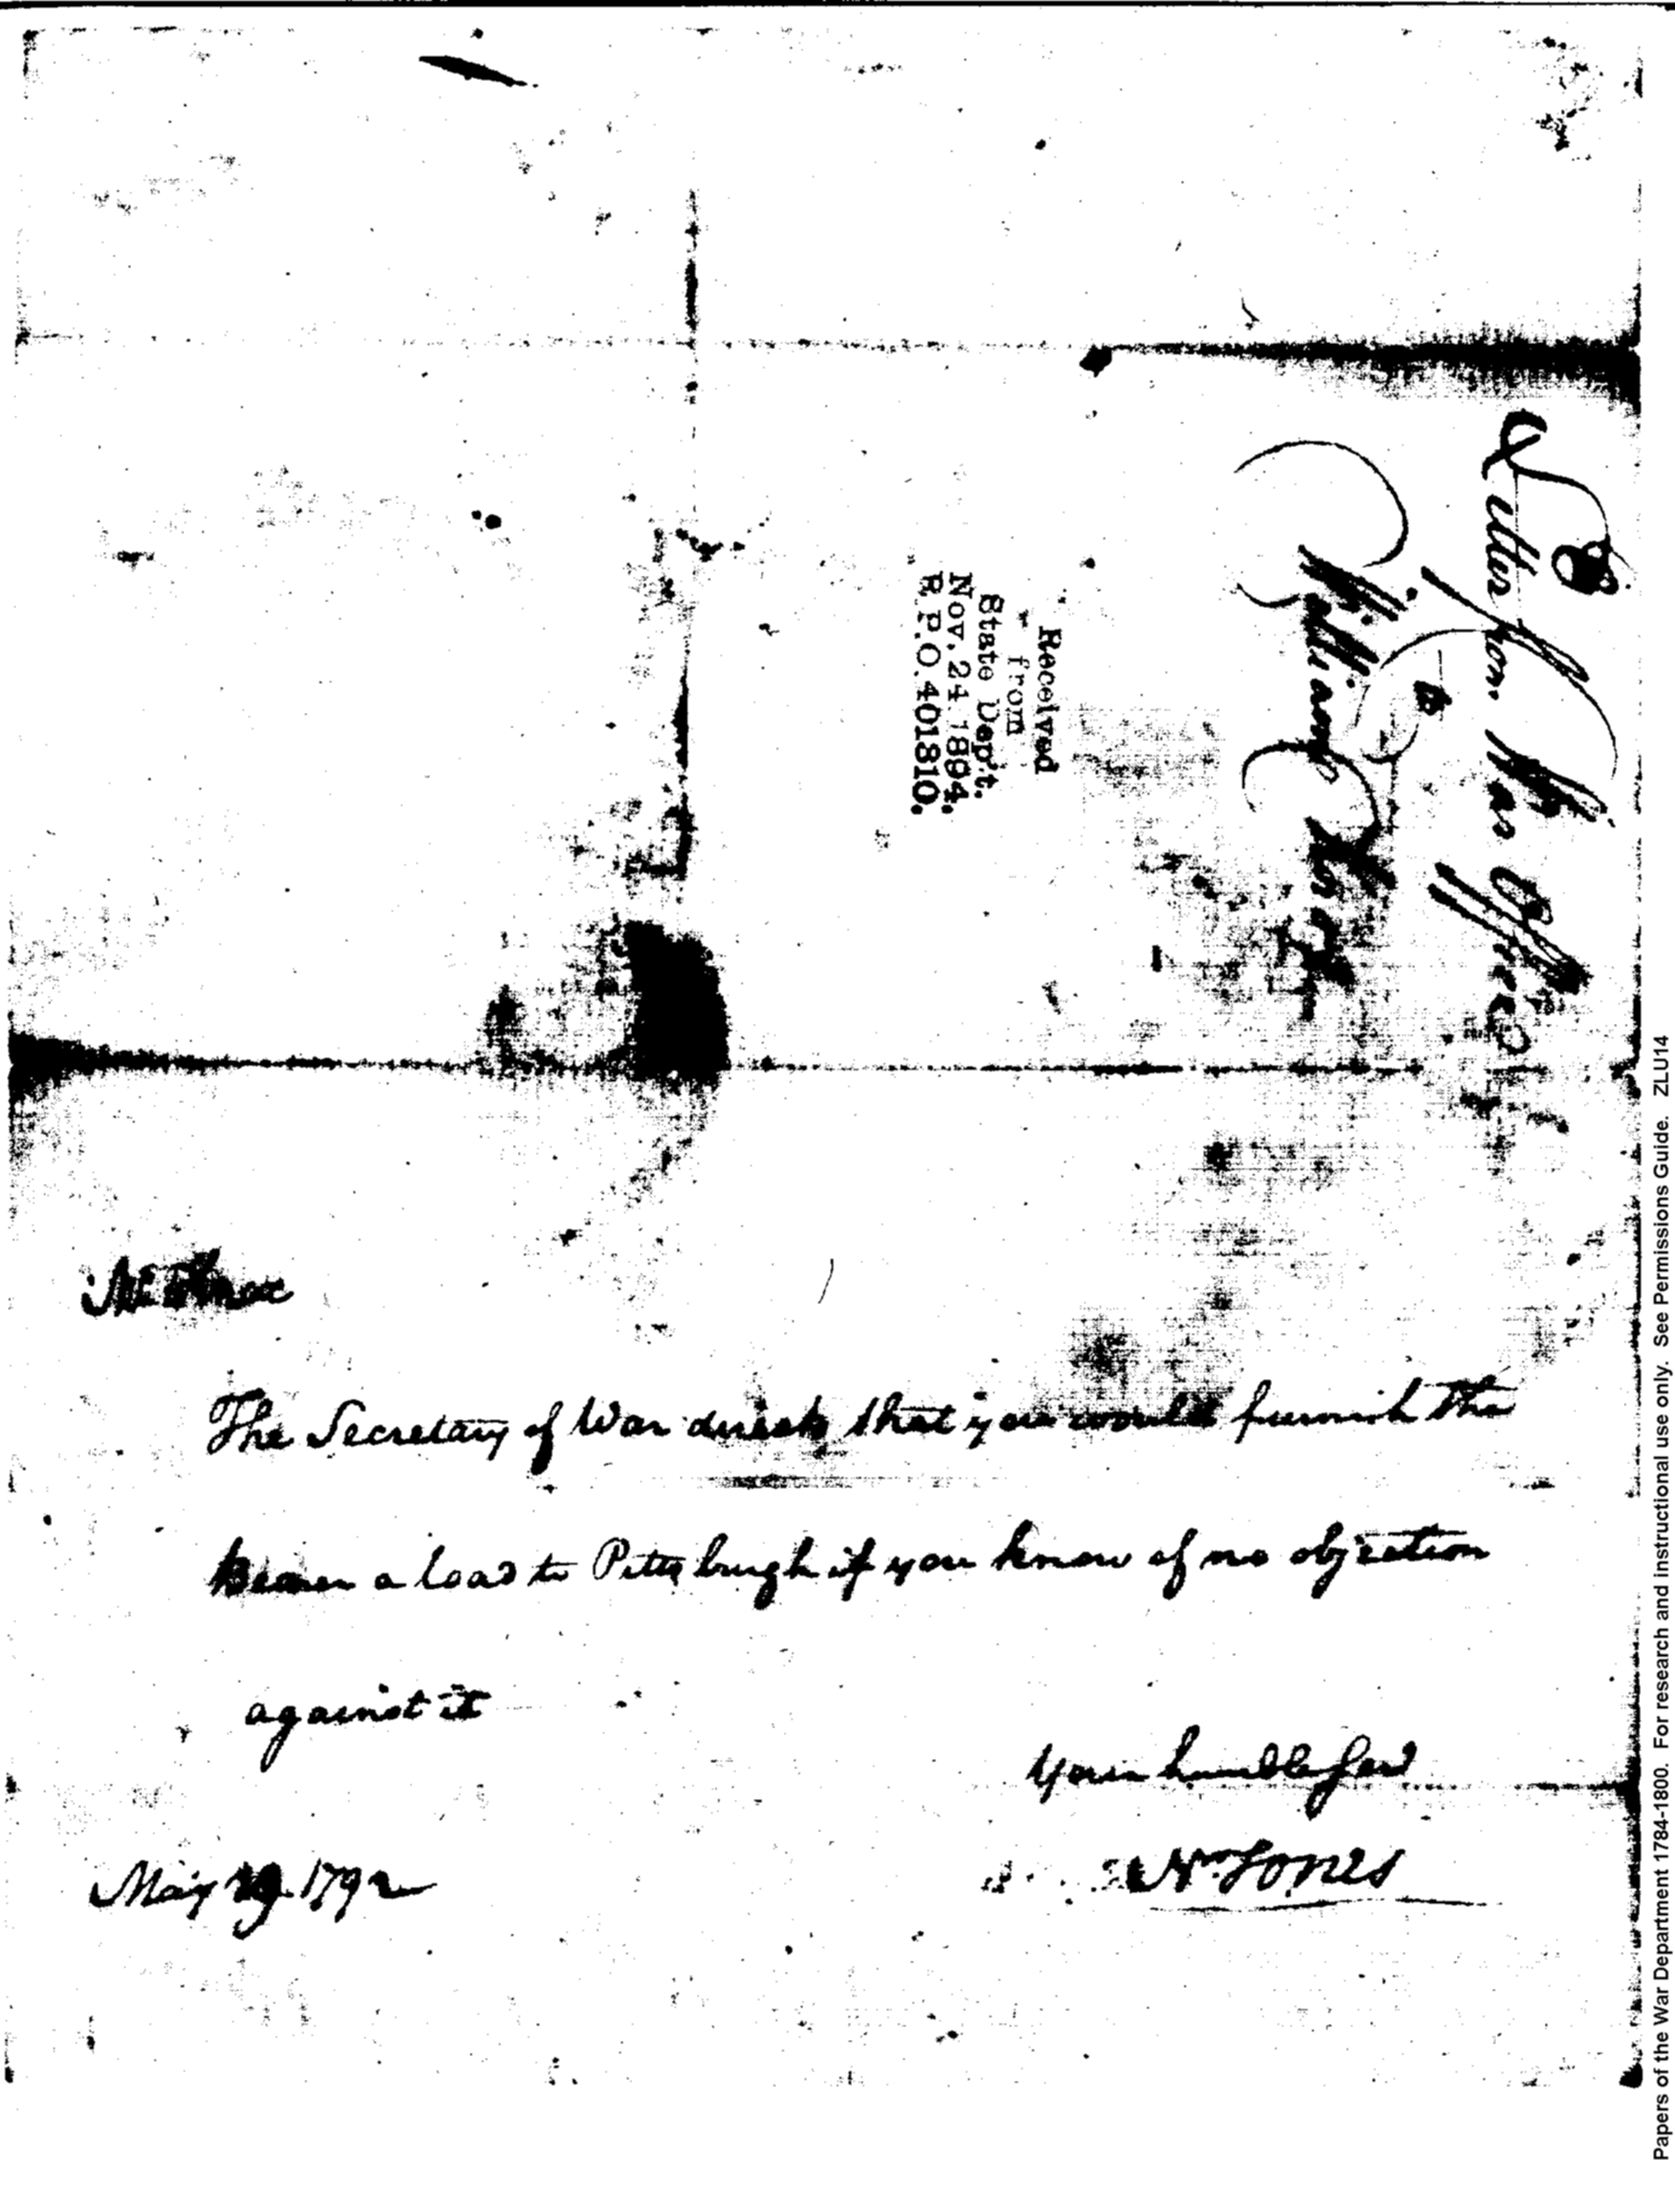 Letter from War Office
to
William Knox
Received
from
State Dep't.
Nov. 24 1894.
R.P.O. 401810.
Mr Knox
The Secretary of War directs that you would furnish the
Bearer a load to Pittsburgh if you know of no objection
against it
Your humble Serv
Wm Jones
May 19 1792
Papers of the War Department 1784-1800. For research and instructional use only. See Permissions Guide. ZLU14